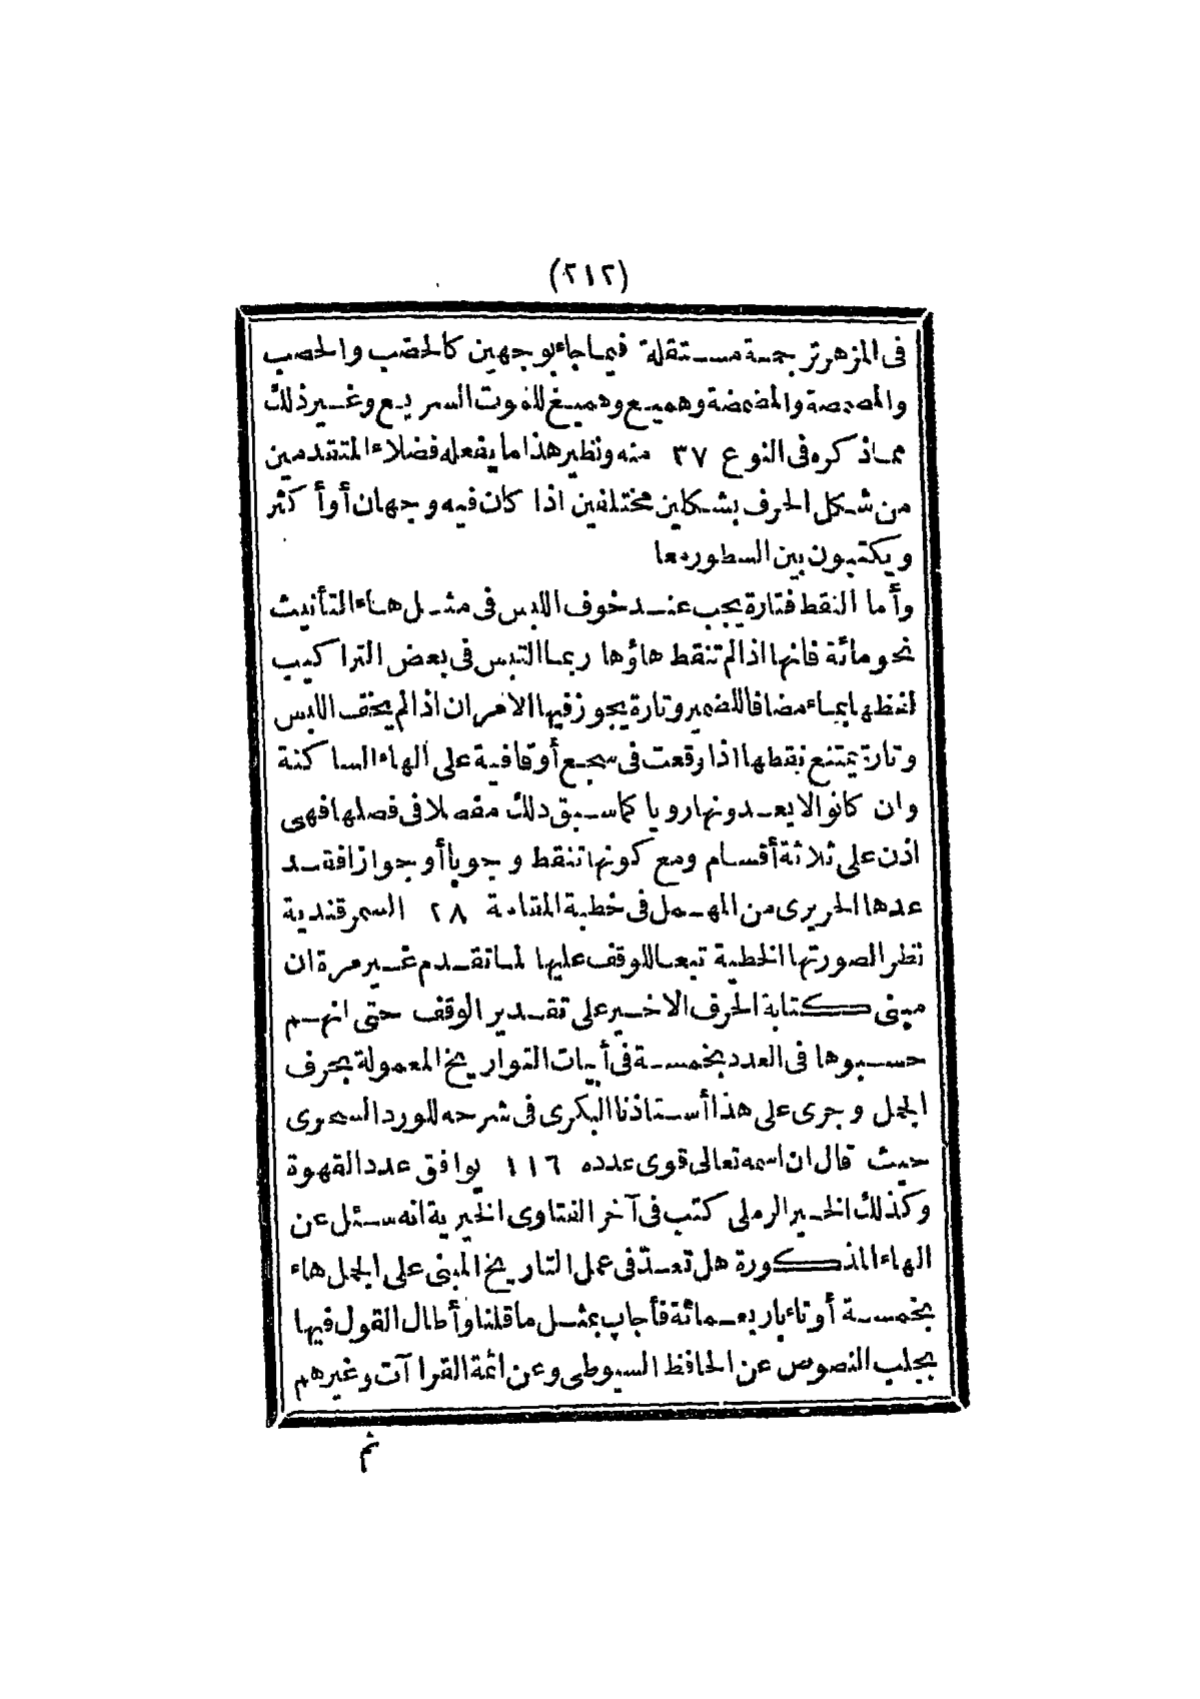 (٢١٢)
فى المزهر ترجمة مستقلة فيما جاء بوجهين كالحضب والحصب
والمصمصة والمضمضة وهميع وهميغ للموت السريع وغير ذلك
مما ذكره فى النوع ٣٧ منه ونظير هذا ما يفعله فضلاء المتقدمين
من شكل الحرف بشكلين مختلفين اذا كان فيه وجهان أو أكثر
ويكتبون بين السطور معا
وأما النقط فتارة يجب عند خوف اللبس فى مثل هاء التأنيث
نحو مائة فانها اذا لم تنقط هاؤها ربما التبس فى بعض التراكيب
لفظها بماء مضافا للضمير وتارة يجوز فيها الامران اذا لم يخف اللبس
وتارة يمتنع نقطها اذا وقعت فى سجع أو قافية على الهاء الساكنة
وان كانوا لا يعدونها رويا كما سبق ذلك مفصلا فى فصلها فهى
اذن على ثلاثة أقسام ومع كونها تنقط وجوبا أو جوازا فقد
عدها الحريرى من المهمل فى خطبة المقامة ٢٨ السمرقندية
نظرا لصورتها الخطية تبعا للوقف عليها لما تقدم غير مرة ان
مبنى كتابة الحرف الاخير على تقدير الوقف حتى انهم
حسبوها فى العدد بخمسة فى أبيات التواريخ المعمولة بحرف
الجمل وجرى على هذا أستاذنا البكرى فى شرحه للورد السحرى
حيث قال ان اسمه تعالى قوى عدده ١١٦ يوافق عدد القهوة
وكذلك الخير الرملى كتب فى آخر الفتاوى الخيرية انه سئل عن
الهاء المذكورة هل تعدّ فى عمل التاريخ المبنى على الجمل هاء
بخمسة أو تاء باربعمائة فأجاب بمثل ما قلنا وأطال القول فيها
بجلب النصوص عن الحافظ السيوطى وعن ائمة القراآت وغيرهم
ثم